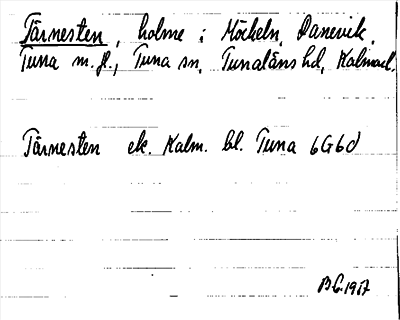 Tärnesten, holme i Möckeln, Danevik,
Tuna m. fl., Tuna sn, Tunaläns hd, Kalmar l.
Tärnesten ek. Kalm. bl. Tuna 6G6d
B.G. 1917